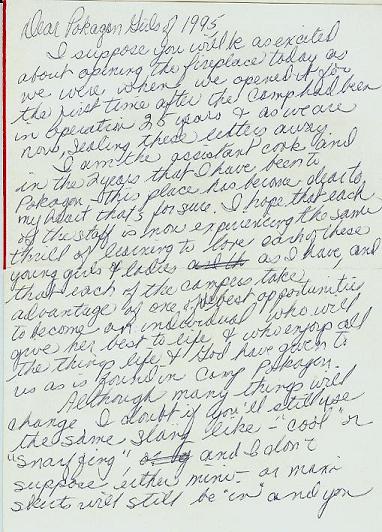 Dear Pokagon Girls of 1995
I suppose you will be as excited
about opening the fireplace today as
we were when we opened it for
the first time after the camp had been
in operation 25 years & as we are
now, sealing these letters away.
I am the assistant cook and
in the 2 years that I have been to
Pokagon this place has become dear to
my heart that's for sure. I hope that each
of the staff is now experiencing the same
thrill of learning to love each of these
young girls & ladies as I have and
that each of the campers take
advantage of one of the best opportunities
to become an individual who will
give her best to life & who enjoys all
the things life & God have given to
us as is found in Camp Pokagon.
Although many things will
change I doubt if you'll still use
the same slang like - "cool" or
and I don't
suppose either mini- or maxi
skirts will still be "in" and you